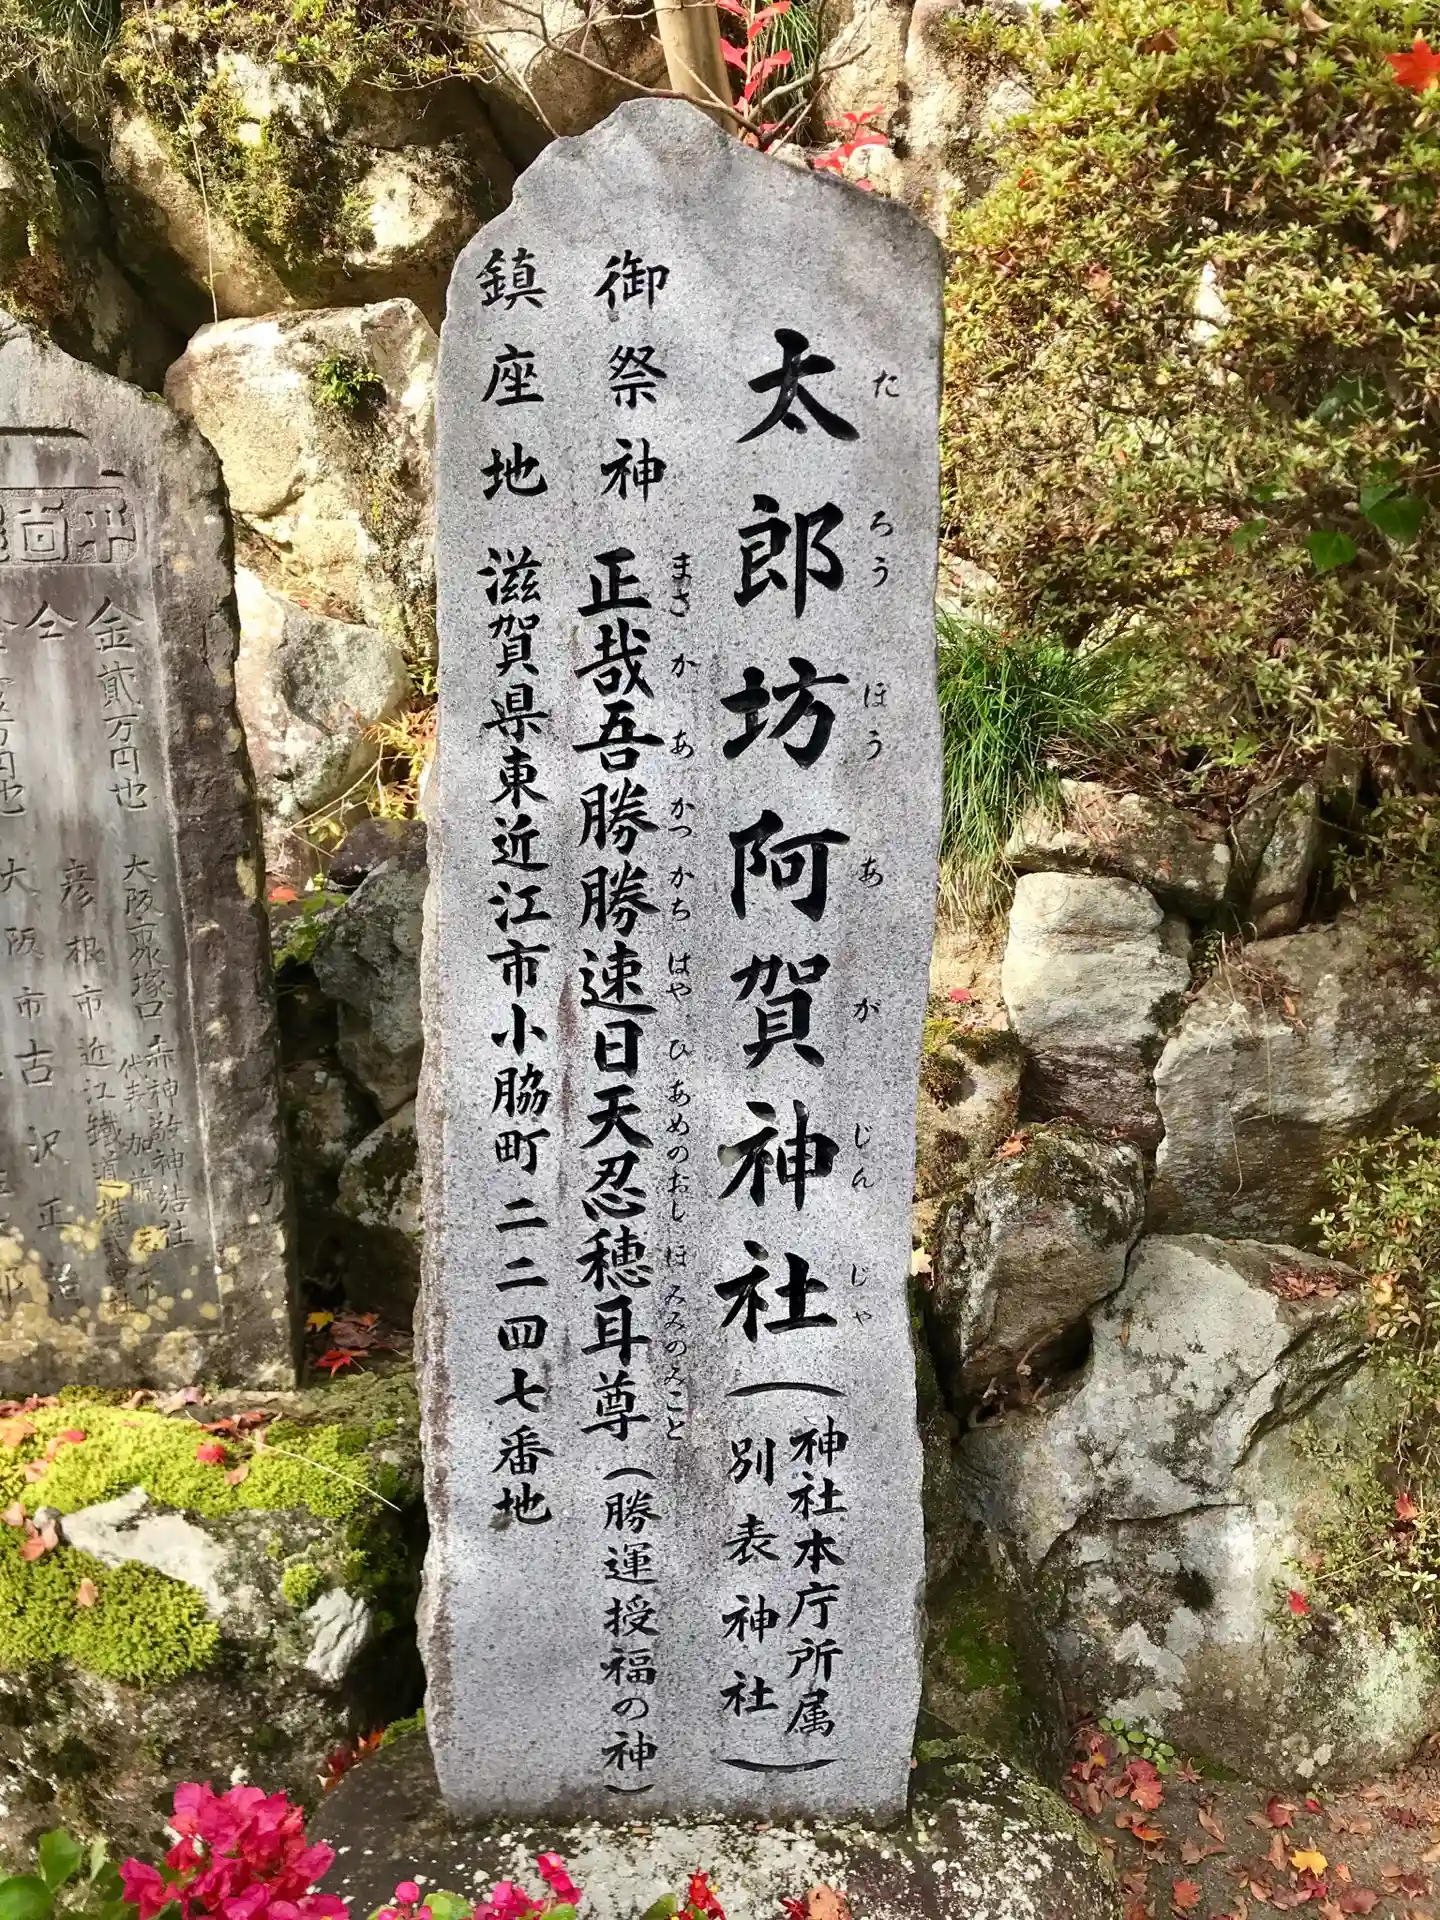 太郎坊阿賀神社(神社本庁所属
別表神社)
たろうぼうあがじんじゃ
御祭神 正哉吾勝勝速日天忍穂耳尊(勝運授福の神)
まさかあかつかちはやひあめのおしほみみのみこと
鎮座地 滋賀県東近江市小脇町二二四七番地
金貮万円也
大阪市
赤神敬神結社
代表 加藤
仝
彦根市近江鐵道株式會社
大阪市古沢正治